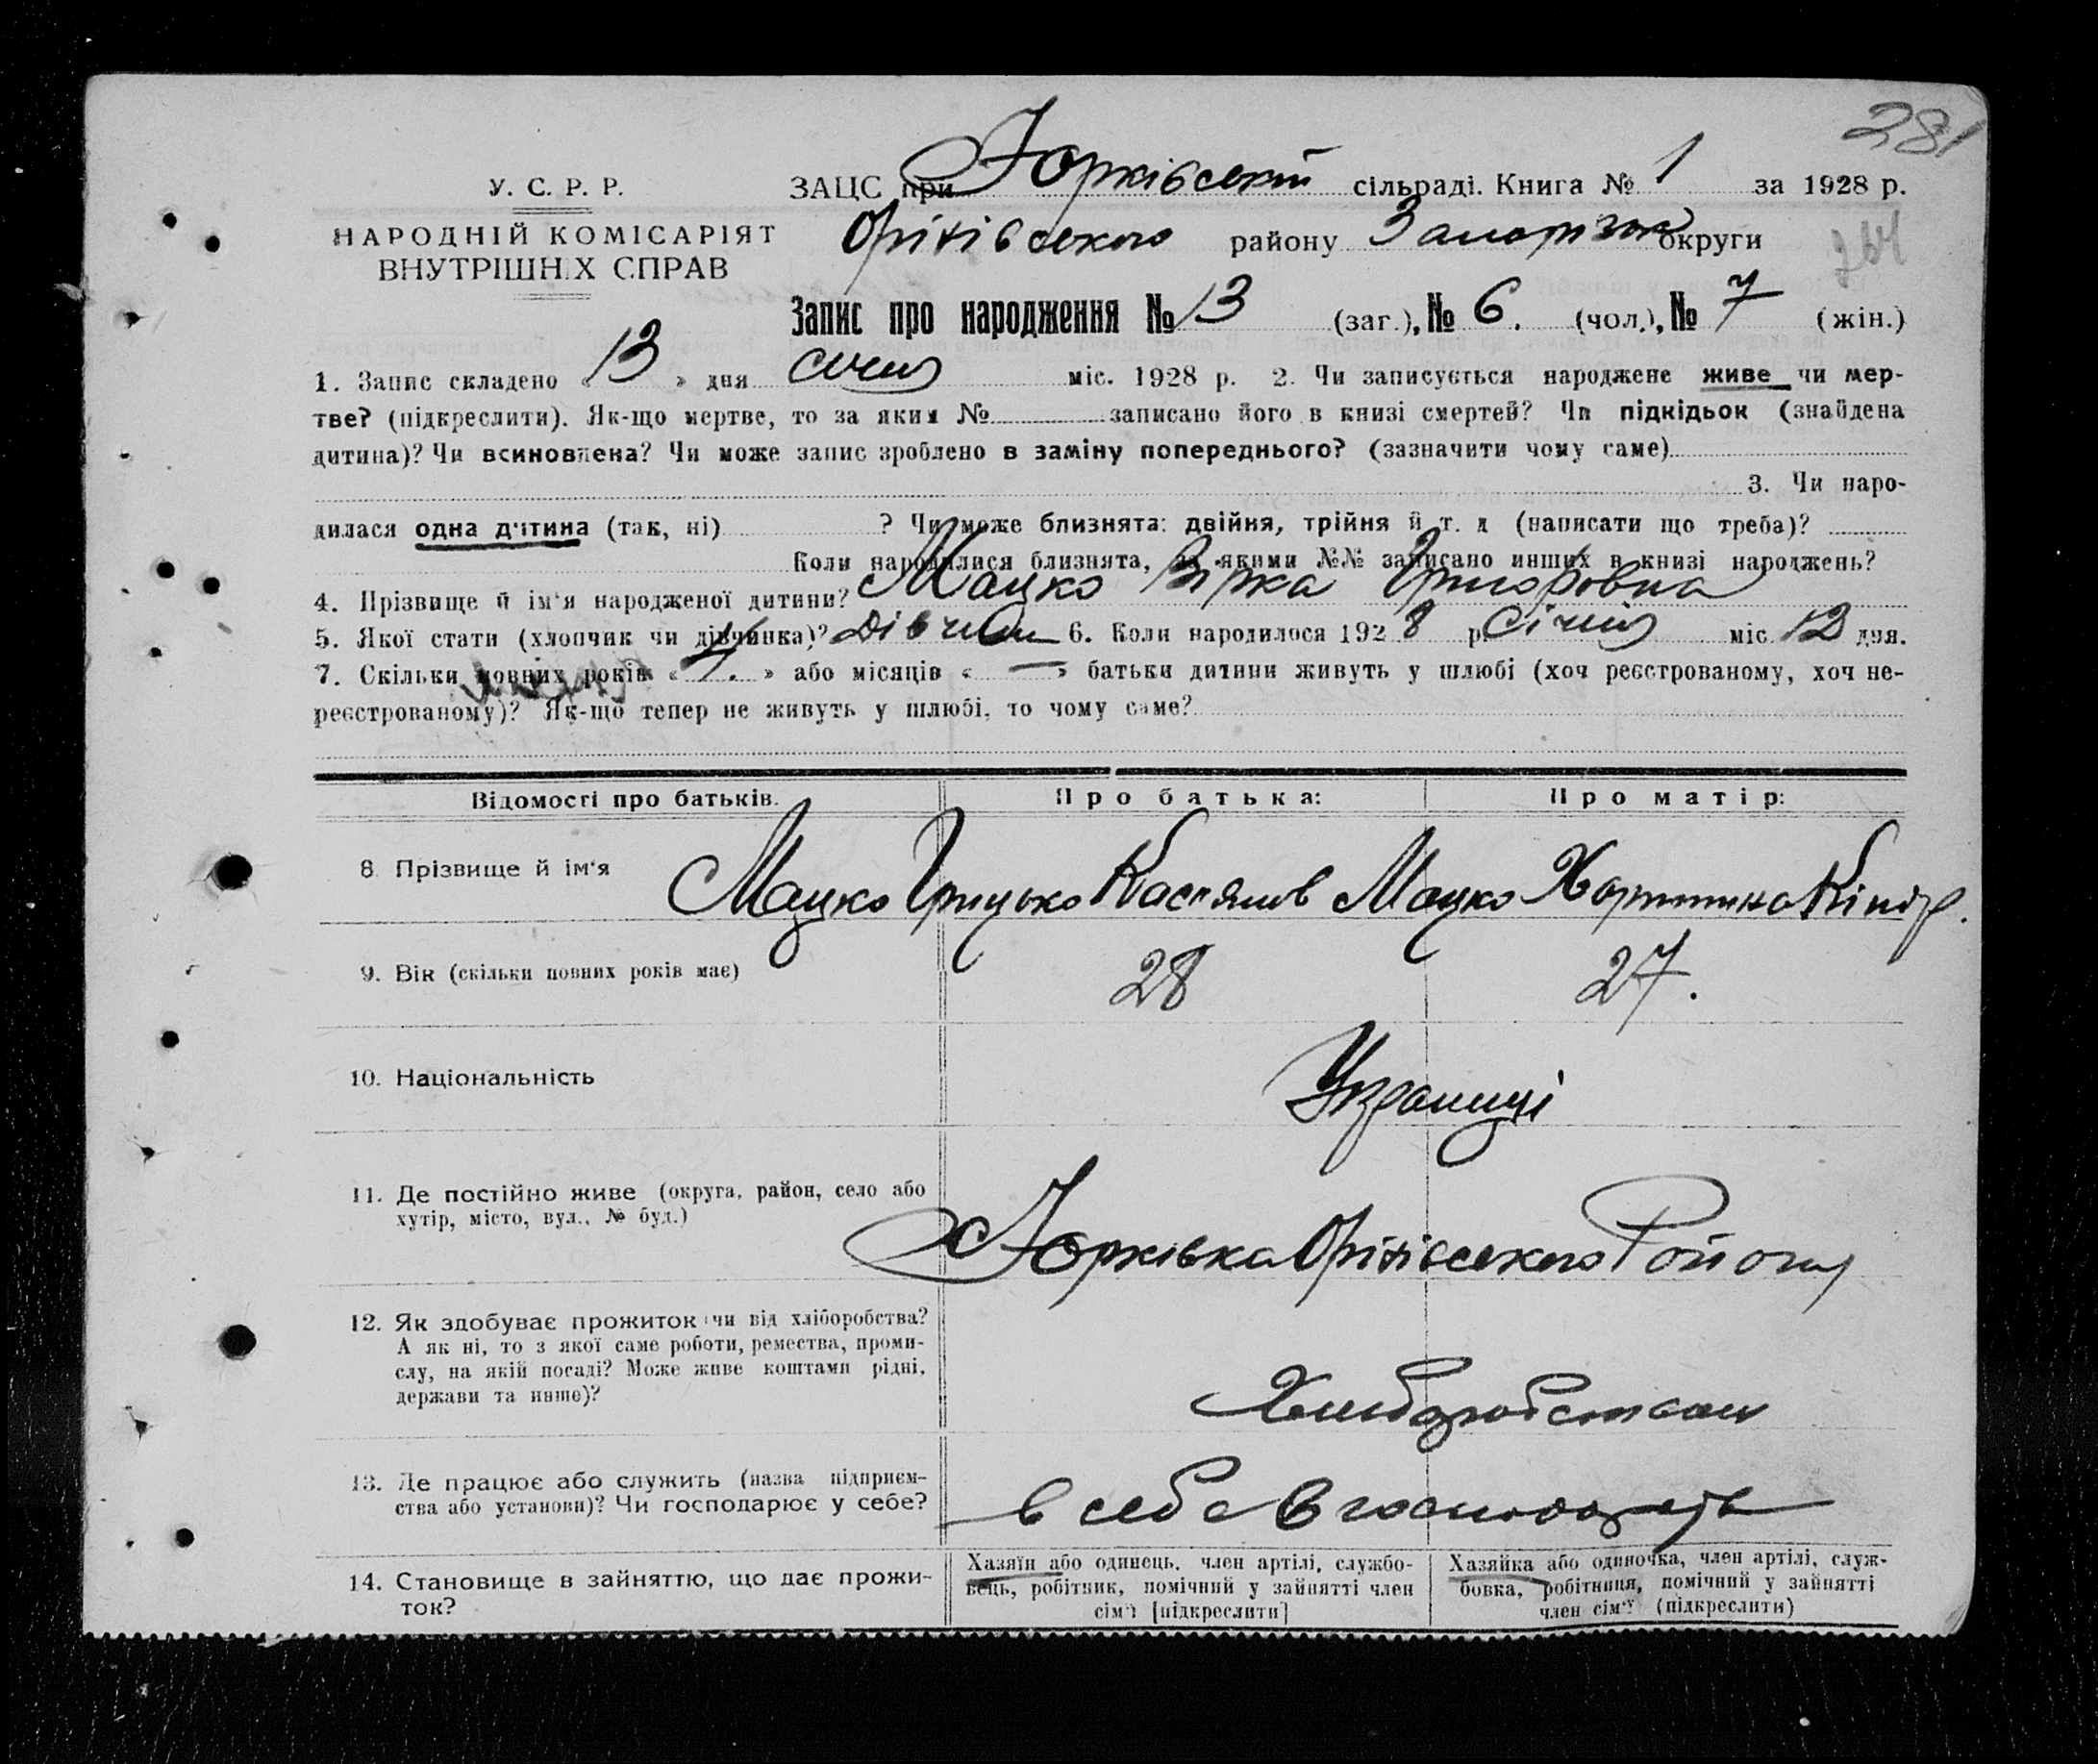 281
У. С. Р. Р.
ЗАЦС при Юрківській сільраді. Книга № 1 за 1928 р.
НАРОДНІЙ КОМІСАРІЯТ
ВНУТРІШНІХ СПРАВ
Оріхівського району Запорізьк округи
Запис про народження № 13 (заг.), № 6. (чол.), № 7 (жін.)
1. Запис складено « 13 » дня січня міс. 1928 р. 2. Чи записується народжене живе чи мер-
тве? (підкреслити). Як-що мертве, то за яким № записано його в книзі смертей? Чи підкідьок (знайдена
дитина)? Чи всиновлена? Чи може запис зроблено в заміну попереднього? (зазначити чому саме)
3. Чи наро-
дилася одна дитина (так, ні) ? Чи може близнята: двійня, трійня й т. д (написати що треба)?
Коли народилися близнята, за якими №№ записано инших в книзі народжень?
4. Прізвище й ім'я народженої дитини? Мацко Вірка Григоровна
5. Якої стати (хлопчик чи дівчинка)? Дівчина 6. Коли народилося 1928 р. Січня міс. 12 дня.
7. Скільки повних років « 7. » або місяців « — » батьки дитини живуть у шлюбі (хоч реєстрованому, хоч не-
реєстрованому)? Як-що тепер не живуть у шлюбі, то чому саме?
Відомості про батьків. Про батька: Про матір:
8. Прізвище й ім'я Мацко Грицько Касьянов Мацко Хартина
9. Вік (скільки повних років має) 28 27.
10. Національність Українці
11. Де постійно живе (округа, район, село або
хутір, місто, вул., № буд.)
Юрківка Оріхівського Району
12. Як здобуває прожиток: чи від хліборобства?
А як ні, то з якої саме роботи, ремества, проми-
слу, на якій посаді? Може живе коштами рідні,
держави та инше)?
Хлиборобством
13. Де працює або служить (назва підприєм-
ства або установи)? Чи господарює у себе?
в себе в господарстві
14. Становище в зайняттю, що дає прожи-
ток?
Хазяїн або одинець, член артілі, службо-
вець, робітник, помічний у зайнятті член
сім'ї [підкреслити]
Хазяйка або одиночка, член артілі, служ-
бовка, робітниця, помічний у зайнятті
член сім'ї (підкреслити)